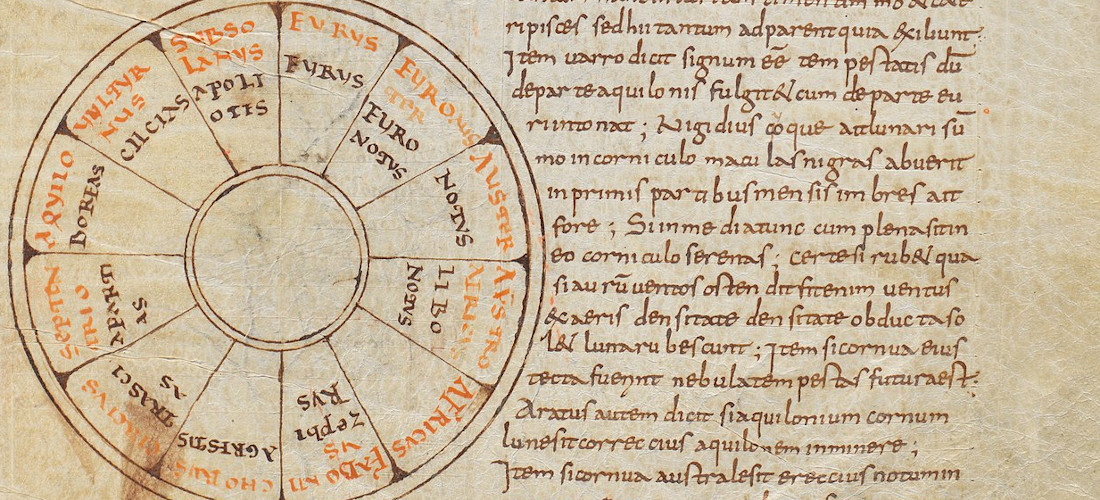 SUBSO
LANUS
APOLI
OTIS
EURUS
EURUS
EURONUS
TER
EURO
NOTUS
AUSTER
NOTUS
AUSTRO
AFRICUS
LIBO
NOTUS
AFRICUS
ZEPHI
RUS
AGRISTIS
CHORUS
TRASCI
AS
SEPTEN
TRIO
APARTI
AS
AQUILO
BORIAS
UULTUR
NUS
CILCIAS
ripisces sed hii tantum adparent quia exiliunt.
Item uarro dicit signum ēē tempestatis dū
de parte aquilonis fulget & cum de parte eu
ri intonat; Nigidius quoque ait luna si sū
mo in corniculo maculas nigras abuerit
in primis partibus mensis imbres ait
fore; Si in medio tunc cum plena sit in
eo corniculo serenas; certe si rub& qua
si aurū uentos ostendit fit enim uentus
ex aeris densitate densitate obducta so
l& luna rubescunt; Item si cornua eius
tecta fuerint nebula tempestas futura est.
Aratus autem dicit si aquilonium cornum
lune sit correccius aquilonem inminere;
Item si cornua australe sit ereccius notum in